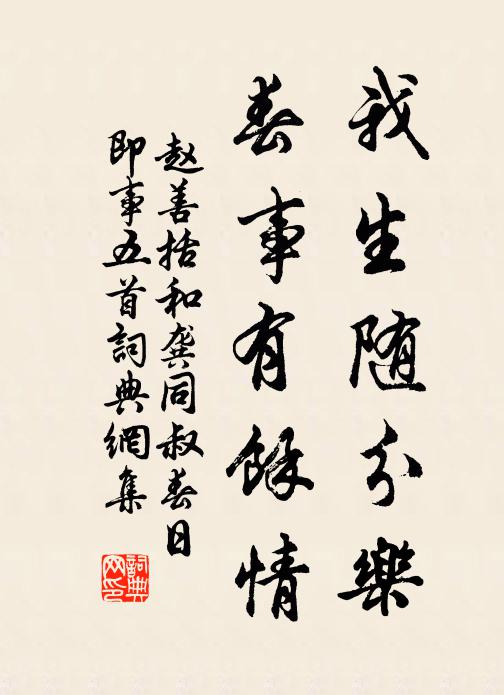 我生随分樂
春事有餘情
赵善括和龚同叔春日
即事五首詞典網集
詞典
网印